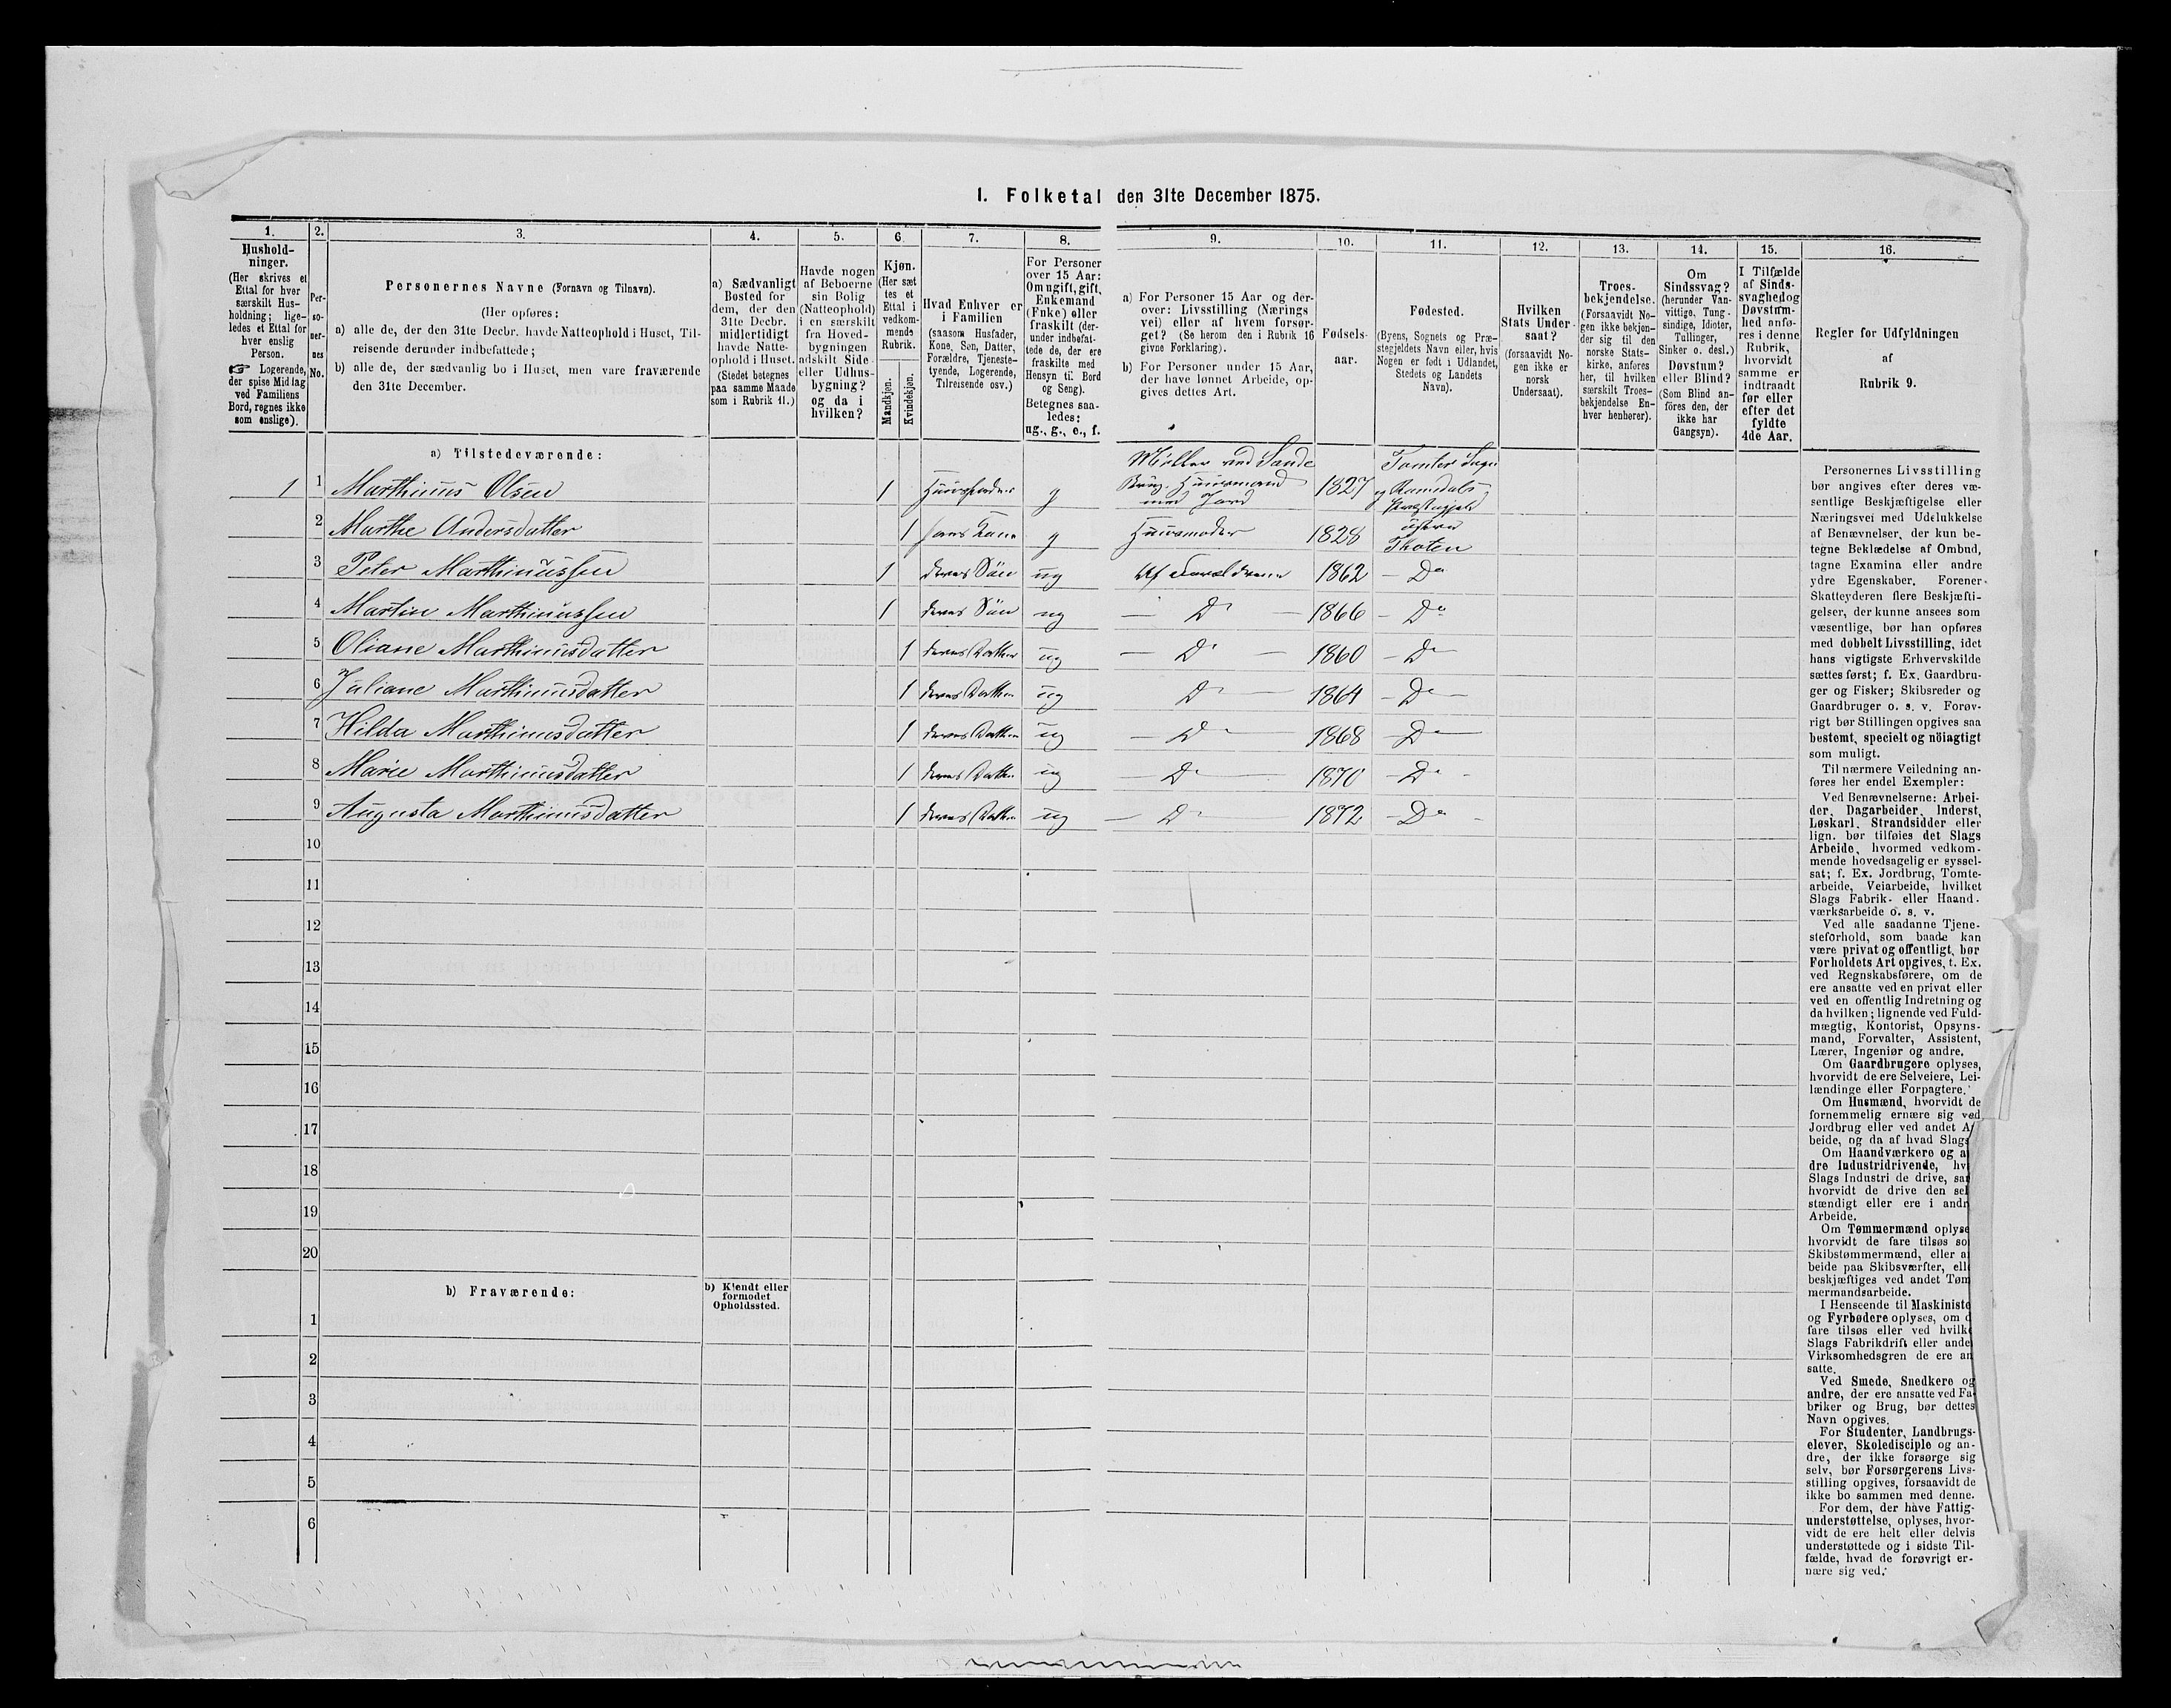 1. Folketal den 31te December 1875.
1. 2. 3. 4. 5. 6. 7. 8. 9. 10. 11. 12. 13. 14. 15. 16.
Hushold-
ninger.
(Her skrives et
Ettal for hver
særskilt Hus-
holdning; lige-
ledes et Ettal for
hver enslig
Person.
☞ Logerende,
der spise Middag
ved Familiens
Bord, regnes ikke
som enslige).
Per-
so-
ner-
nes
No.
Personernes Navne (Fornavn og Tilnavn).
(Her opføres:
a) alle de, der den 31te Decbr. havde Natteophold i Huset, Til-
reisende derunder indbefattede;
b) alle de, der sædvanlig bo i Huset, men vare fraværende
den 31te December.
a) Sædvanligt
Bosted for
dem, der den
31te Decbr.
midlertidigt
havde Natte-
ophold i Huset.
(Stedet betegnes
paa samme Maade
som i Rubrik 11.)
Havde nogen
af Beboerne
sin Bolig
(Natteophold)
i en særskilt
fra Hoved-
bygningen
adskilt Side-
eller Udhus-
bygning?
og da i
hvilken?
Kjøn.
(Her sæt
tes et
Ettal i
vedkom-
mende
Rubrik.
Mandkjøn.
Kvindekjøn.
Hvad Enhver er
i Familien
(saasom Husfader,
Kone, Søn, Datter,
Forældre, Tjeneste-
tyende, Logerende,
Tilreisende osv.)
For Personer
over 15 Aar:
Om ugift, gift,
Enkemand
(Enke) eller
fraskilt (der-
under indbefat-
tede de, der ere
fraskilte med
Hensyn til Bord
og Seng).
Betegnes saa-
ledes:
ug., g., e., f.
a) For Personer 15 Aar og der-
over: Livsstilling (Nærings
vei) eller af hvem forsør-
get? (Se herom den i Rubrik 16
givne Forklaring).
b) For Personer under 15 Aar,
der have lønnet Arbeide, op-
gives dettes Art.
Fødsels-
aar.
Fødested.
(Byens, Sognets og Præ-
stegjeldets Navn eller, hvis
Nogen er født i Udlandet,
Stedets og Landets
Navn).
Hvilken
Stats Under-
saat?
(forsaavidt No-
gen ikke er
norsk
Undersaat).
Troes-
bekjendelse.
(Forsaavidt No-
gen ikke bekjen-
der sig til den
norske Stats-
kirke, anføres
her, til hvilken
særskilt Troes-
bekjendelse En-
hver henhører).
Om
Sindssvag?
(herunder Van-
vittige, Tung-
sindige, Idioter,
Tullinger,
Sinker o. desl.)
Døvstum?
eller Blind?
(Som Blind an-
föres den, der
ikke har
Gangsyn).
I Tilfælde
af Sinds-
svaghed og
Døvstum-
hed anfø-
res i denne
Rubrik,
hvorvidt
samme er
indtraadt
før eller
efter det
fyldte
4de Aar.
Regler for Udfyldningen
af
Rubrik 9.
a) Tilstedeværende:
Møller ved Sande
Brug. Huusmand
med Jord
Tomter Sogn
og Ramedals
Præstegjeld
1 1 Marthinus Olsen 1 Huusfader g 1827
2 Marthe Andersdatter 1 hans Kone g Huusmoder 1828 østre
Thoten
3 Peter Marthinussen 1 deres Søn ug Af Forældrene 1862 – Do
4 Martin Marthinussen 1 deres Søn ug – Do – 1866 – Do
5 Oliane Marthinusdatter 1 deres Datter ug – Do – 1860 – Do
6 Juliane Marthinusdatter 1 deres Datter ug Do – 1864 – Do –
7 Hilda Marthinusdatter 1 deres Datter ug – Do – 1868 – Do –
8 Marie Marthinusdatter 1 deres Datter ug – Do – 1870 – Do -
9 Augusta Marthinusdatter 1 deres Datter ug – Do 1872 – Do -
10
11
12
13
14
15
16
17
18
19
20
b) Fraværende:
b) Kjendt eller
formodet
Opholdssted.
1
2
3
4
5
6
Personernes Livsstilling
bør angives efter deres væ-
sentlige Beskjæftigelse eller
Næringsvei med Udelukkelse
af Benævnelser, der kun be-
tegne Beklædelse af Ombud,
tagne Examina eller andre
ydre Egenskaber. Forener
Skatteyderen flere Beskjæfti-
gelser, der kunne ansees som
væsentlige, bør han opføres
med dobbelt Livsstilling, idet
hans vigtigste Erhvervskilde
sættes først; f. Ex. Gaardbru-
ger og Fisker; Skibsreder og
Gaardbruger o. s. v. Forøv-
rigt bør Stillingen opgives saa
bestemt, specielt og nöiagtigt
som muligt.
Til nærmere Veiledning an-
føres her endel Exempler:
Ved Benævnelserne: Arbei-
der, Dagarbeider, Inderst,
Løskarl, Strandsidder eller
lign. bør tilføies det Slags
Arbeide, hvormed vedkom-
mende hovedsagelig er syssel-
sat; f. Ex. Jordbrug, Tomte-
arbeide, Veiarbeide, hvilket
Slags Fabrik- eller Haand-
værksarbeide o. s. v.
Ved alle saadanne Tjene-
steforhold, som baade kan
være privat og offentligt, bør
Forholdets Art opgives, t. Ex.
ved Regnskabsførere, om de
ere ansatte ved en privat eller
ved en offentlig Indretning og
da hvilken; lignende ved Fuld-
mægtig, Kontorist, Opsyns-
mand, Forvalter, Assistent,
Lærer, Ingeniør og andre.
Om Gaardbrugere oplyses,
hvorvidt de ere Selveiere, Lei-
lændinge eller Forpagtere.
Om Husmænd, hvorvidt de
fornemmelig ernære sig ved
Jordbrug eller ved andet A
beide, og da af hvad Slags
Om Haandværkere og a
dre Industridrivende, hv
Slags Industri de drive, sa
hvorvidt de drive den sel
stændigt eller ere i andr
Arbeide.
Om Tømmermænd oplyse
hvorvidt de fare tilsøs so
Skibstømmermænd, eller a
beide paa Skibsværfter, ell
beskjæftiges ved andet Tøm
mermandsarbeide.
I Henseende til Maskiniste
og Fyrbødere oplyses, om d
fare tilsøs eller ved hvilke
Slags Fabrikdrift eller ande
Virksomhedsgren de ere an
satte.
Ved Smede, Snedkere og
andre, der ere ansatte ved Fa-
briker og Brug, bør dettes
Navn opgives.
For Studenter, Landbrugs-
elever, Skoledisciple og an-
dre, der ikke forsørge sig
selv, bør Forsørgerens Livs-
stilling opgives, forsaavidt de
ikke bo sammen med denne.
For dem, der have Fattig-
understøttelse, oplyses, hvor-
vidt de ere helt eller delvis
understøttede og i sidste Til-
fælde, hvad de forøvrigt er-
nære sig ved.